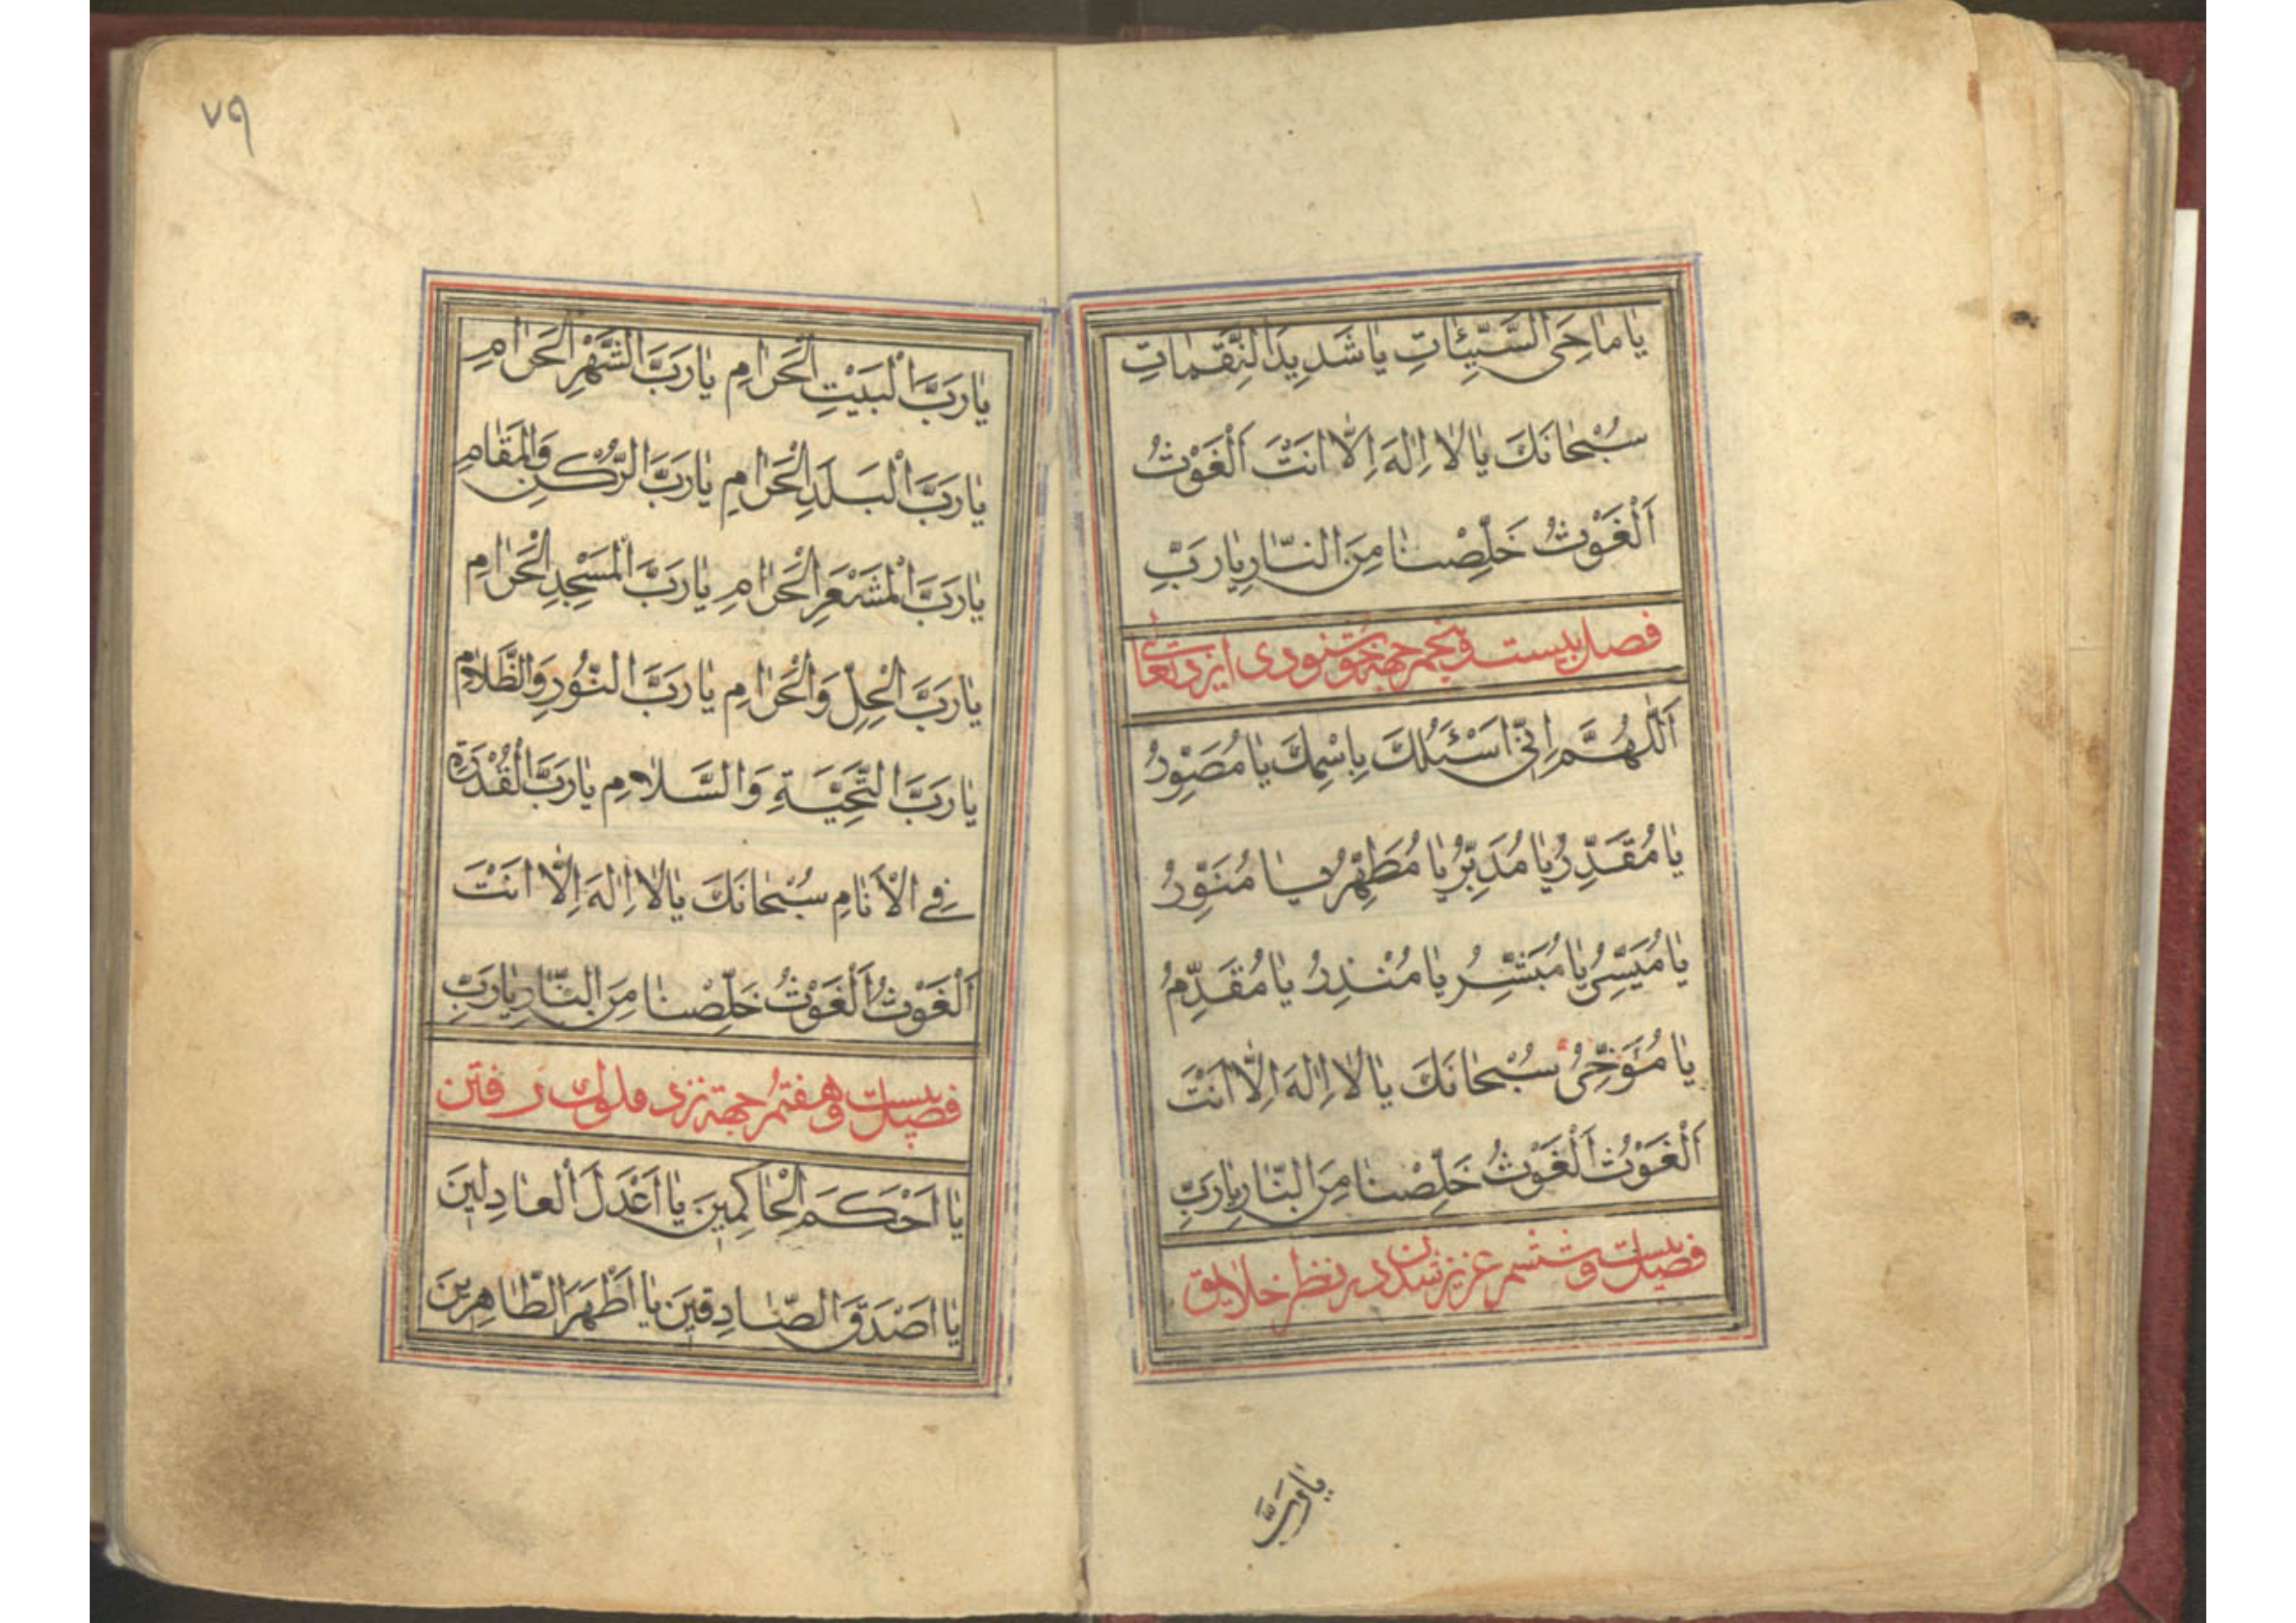 يا ماحِىَ السَّيِّئاتِ يا شَديدَ النَّقِماتِ
سُبْحانَكَ يا لا اِلهَ اِلّا اَنْتَ اَلْغَوْثُ
اَلْغَوْثُ خَلِّصْنا مِنَ النّارِ يا رَبِّ
فصل بيست وپنجم جهة خوشنودى ايزد تعالى
اَللّهُمَّ اِنّى اَسْئَلُكَ بِاسْمِكَ يا مُصَوِّرُ
يا مُقَدِّرُ يا مُدَبِّرُ يا مُطَهِّرُ يا مُنَوِّرُ
يا مُيَسِّرُ يا مُبَشِّرُ يا مُنْذِرُ يا مُقَدِّمُ
يا مُؤَخِّرُ سُبْحانَكَ يا لا اِلهَ اِلّا اَنْتَ
اَلْغَوْثُ اَلْغَوْثُ خَلِّصْنا مِنَ النّارِ يا رَبِّ
فصل بيست وششم عزيز شدن در نظر خلايق
يا رَبَّ
٧٩
يا رَبَّ الْبَيْتِ الْحَرامِ يا رَبَّ الشَّهْرِ الْحَرامِ
يا رَبَّ الْبَلَدِ الْحَرامِ يا رَبَّ الرُّكْنِ وَالْمَقامِ
يا رَبَّ الْمَشْعَرِ الْحَرامِ يا رَبَّ الْمَسْجِدِ الْحَرامِ
يا رَبَّ الْحِلِّ وَالْحَرامِ يا رَبَّ النُّورِ وَالظَّلامِ
يا رَبَّ التَّحِيَّةِ وَالسَّلامِ يا رَبَّ الْقُدْرَةِ
فِى الْاَنامِ سُبْحانَكَ يا لا اِلهَ اِلّا اَنْتَ
اَلْغَوْثُ اَلْغَوْثُ خَلِّصْنا مِنَ النّارِ يا رَبِّ
فصل بيست وهفتم جهة نزد ملوك رفتن
يا اَحْكَمَ الْحاكِمينَ يا اَعْدَلَ الْعادِلينَ
يا اَصْدَقَ الصّادِقينَ يا اَطْهَرَ الطّاهِرينَ